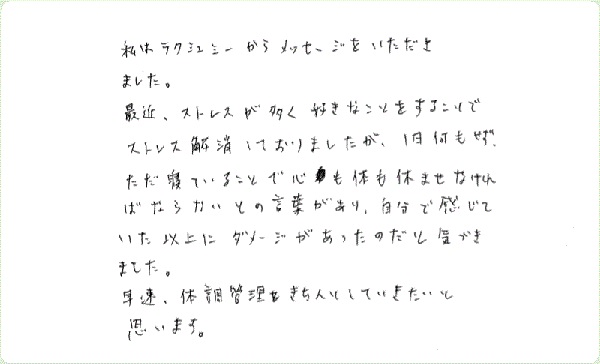 私はラクシュミーからメッセージをいただき
ました。
最近、ストレスが多く好きなことをすることで
ストレス解消しておりましたが、1日何もせず、
ただ寝ていることで心も体も休ませなければ
ばならないとの言葉があり、自分で感じて
いた以上にダメージがあったのだと気づき
ました。
早速、体調管理をきちんとしていきたいと
思います。